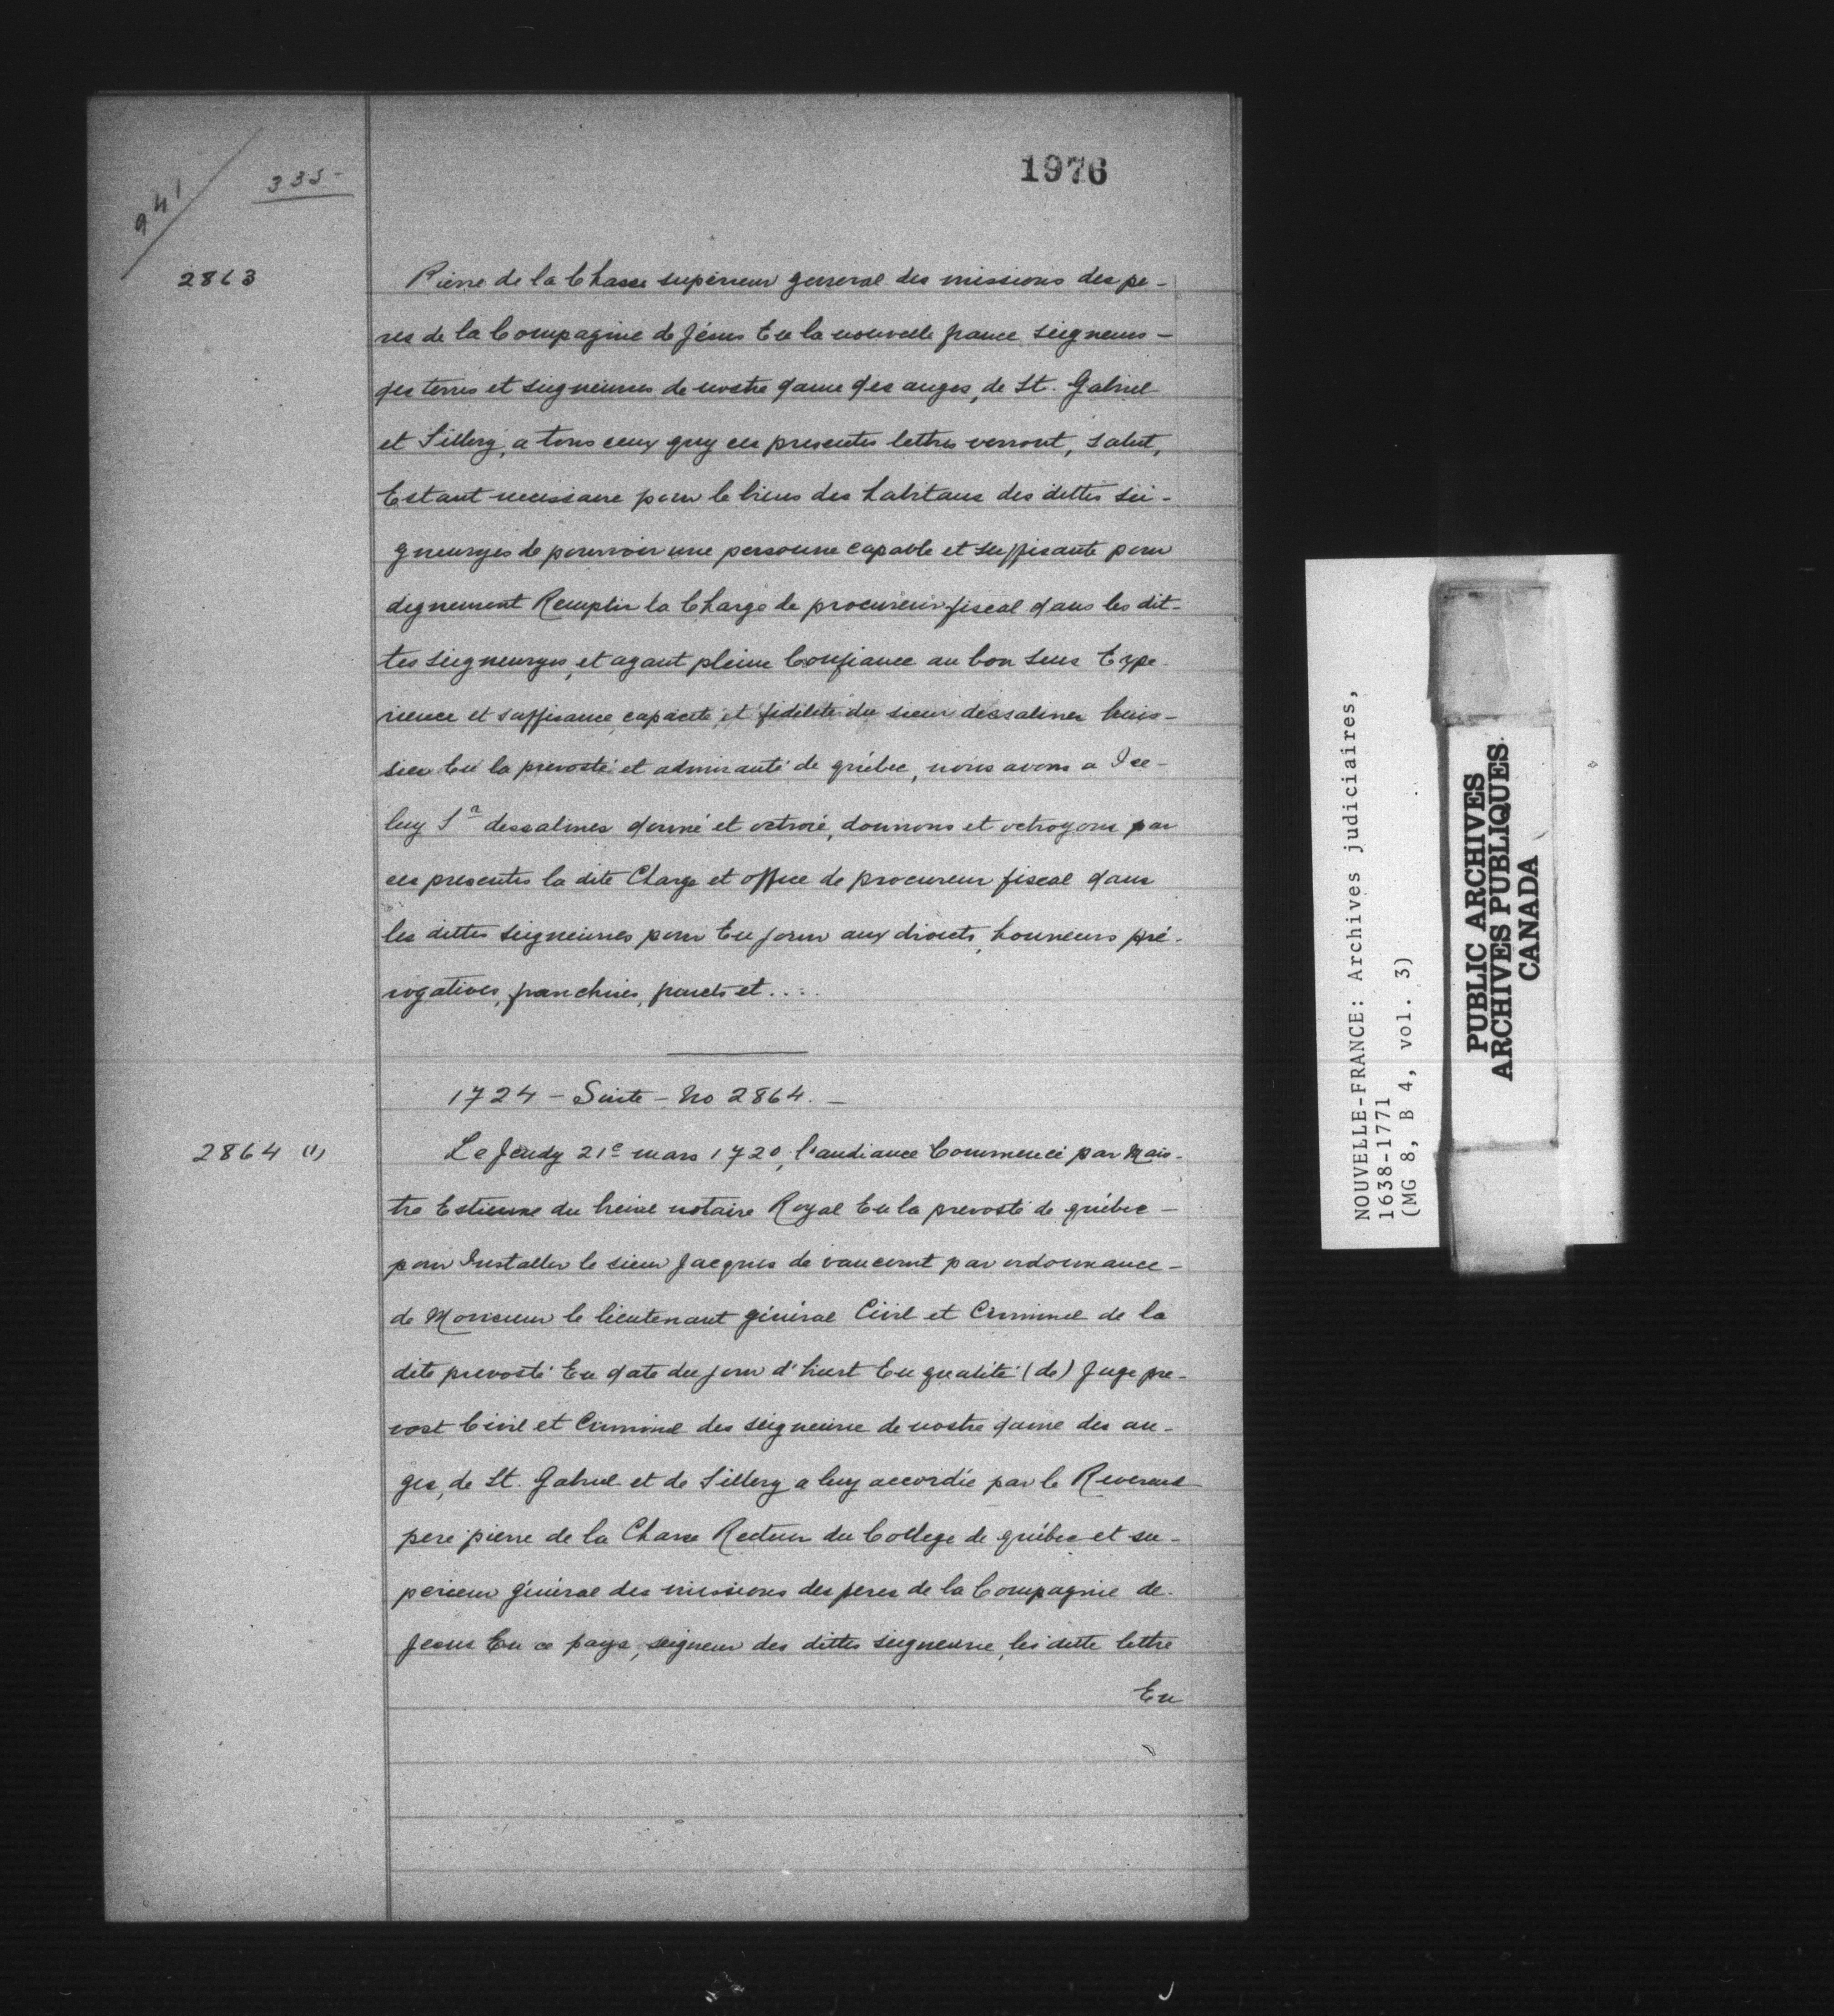 1976
941
335-
2863
Pierre de la Chasse supérieur general des missions des pe-
res de la Compagnie de Jésus En la nouvelle france seigneurs-
des terres et seigneuries de nostre dame des anges, de St. Gabriel
et Sillery, a tous ceux quy ces presentes lettres verront, salut,
Estant necessaire pour le biens des habitans des dittes sei-
gneuryes de pourvoir une personne capable et suffisante pour
dignement Remplir la Charge de procureur fiscal dans les dit-
tes seigneuryes, et ayant pleine Confiance au bon sens Expe-
rience et suffisance, capacité, et fidélité du sieur dessalines huis-
sier En la prevosté et admirauté de québec, nous avons a Ice-
luy Sr dessalines donné et octroié, donnons et octroyons par
ces presentes la dite Charge et office de procureur fiscal dans
les dittes seigneuries pour En jouir aux droits, honneurs pré-
rogatives, franchises, et....
1724 - Suite - No 2864. -
2864 (1)
Le Jeudy 21e mars 1720, l'audiance Commencé par Mais-
tre Estienne du breuil notaire Royal En la prevosté de québec -
pour Installer le sieur Jacques de vaucourt par ordonnance -
de Monsieur le lieutenant général Civil et Criminel de la
dite prevosté En date du jour d'hier En qualité (de) Juge pre-
vost Civil et Criminel des seigneurie de nostre dame des an-
ges, de St. Gabriel et de Sillery a luy accordée par le Reverend
pere pierre de la Chasse Recteur du College de québec et su-
perieur général des missions des peres de la Compagnie de
Jesus En ce pays, seigneur des dittes seigneurie, les ditte lettre
En
NOUVELLE-FRANCE: Archives judiciaires,
1638-1771
(MG 8, B 4, vol. 3)
PUBLIC ARCHIVES
ARCHIVES PUBLIQUES
CANADA